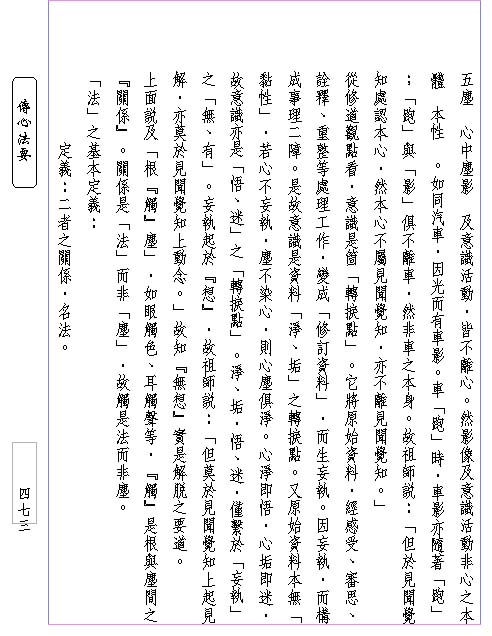 傳心法要
五塵　心中塵影　及意識活動，皆不離心。然影像及意識活動非心之本
體　本性　。如同汽車，因光而有車影。車「跑」時，車影亦隨著「跑」
；「跑」與「影」俱不離車，然非車之本身。故祖師說：「但於見聞覺
知處認本心，然本心不屬見聞覺知，亦不離見聞覺知。」
從修道觀點看，意識是個「轉捩點」。它將原始資料，經感受、審思、
詮釋、重整等處理工作，變成「修訂資料」，而生妄執。因妄執，而構
成事理二障。是故意識是資料「淨、垢」之轉捩點。又原始資料本無「
黏性」，若心不妄執，塵不染心，則心塵俱淨。心淨即悟，心垢即迷，
故意識亦是「悟、迷」之「轉捩點」。淨、垢，悟、迷，僅繫於「妄執」
之「無、有」。妄執起於『想』，故祖師說：「但莫於見聞覺知上起見
解，亦莫於見聞覺知上動念。」故知『無想』實是解脫之要道。
上面說及「根『觸』塵」，如眼觸色、耳觸聲等，『觸』是根與塵間之
『關係』。關係是「法」而非「塵」，故觸是法而非塵。
「法」之基本定義：
定義：二者之關係，名法。
四七三